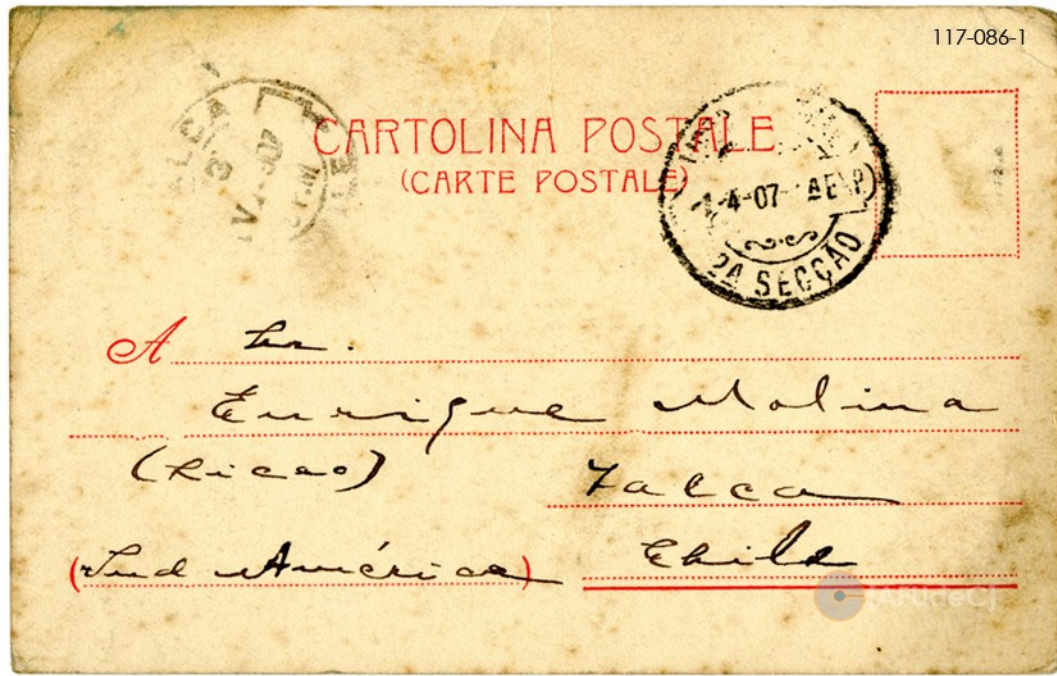 117-086-1
CARTOLINA POSTALE
(CARTE POSTALE)
ALCA
-4-07
2A SECÇÃO
A Sr.
Enrique Molina
(Liceo) Talca
(Sud América) Chile
[ArUdeC]